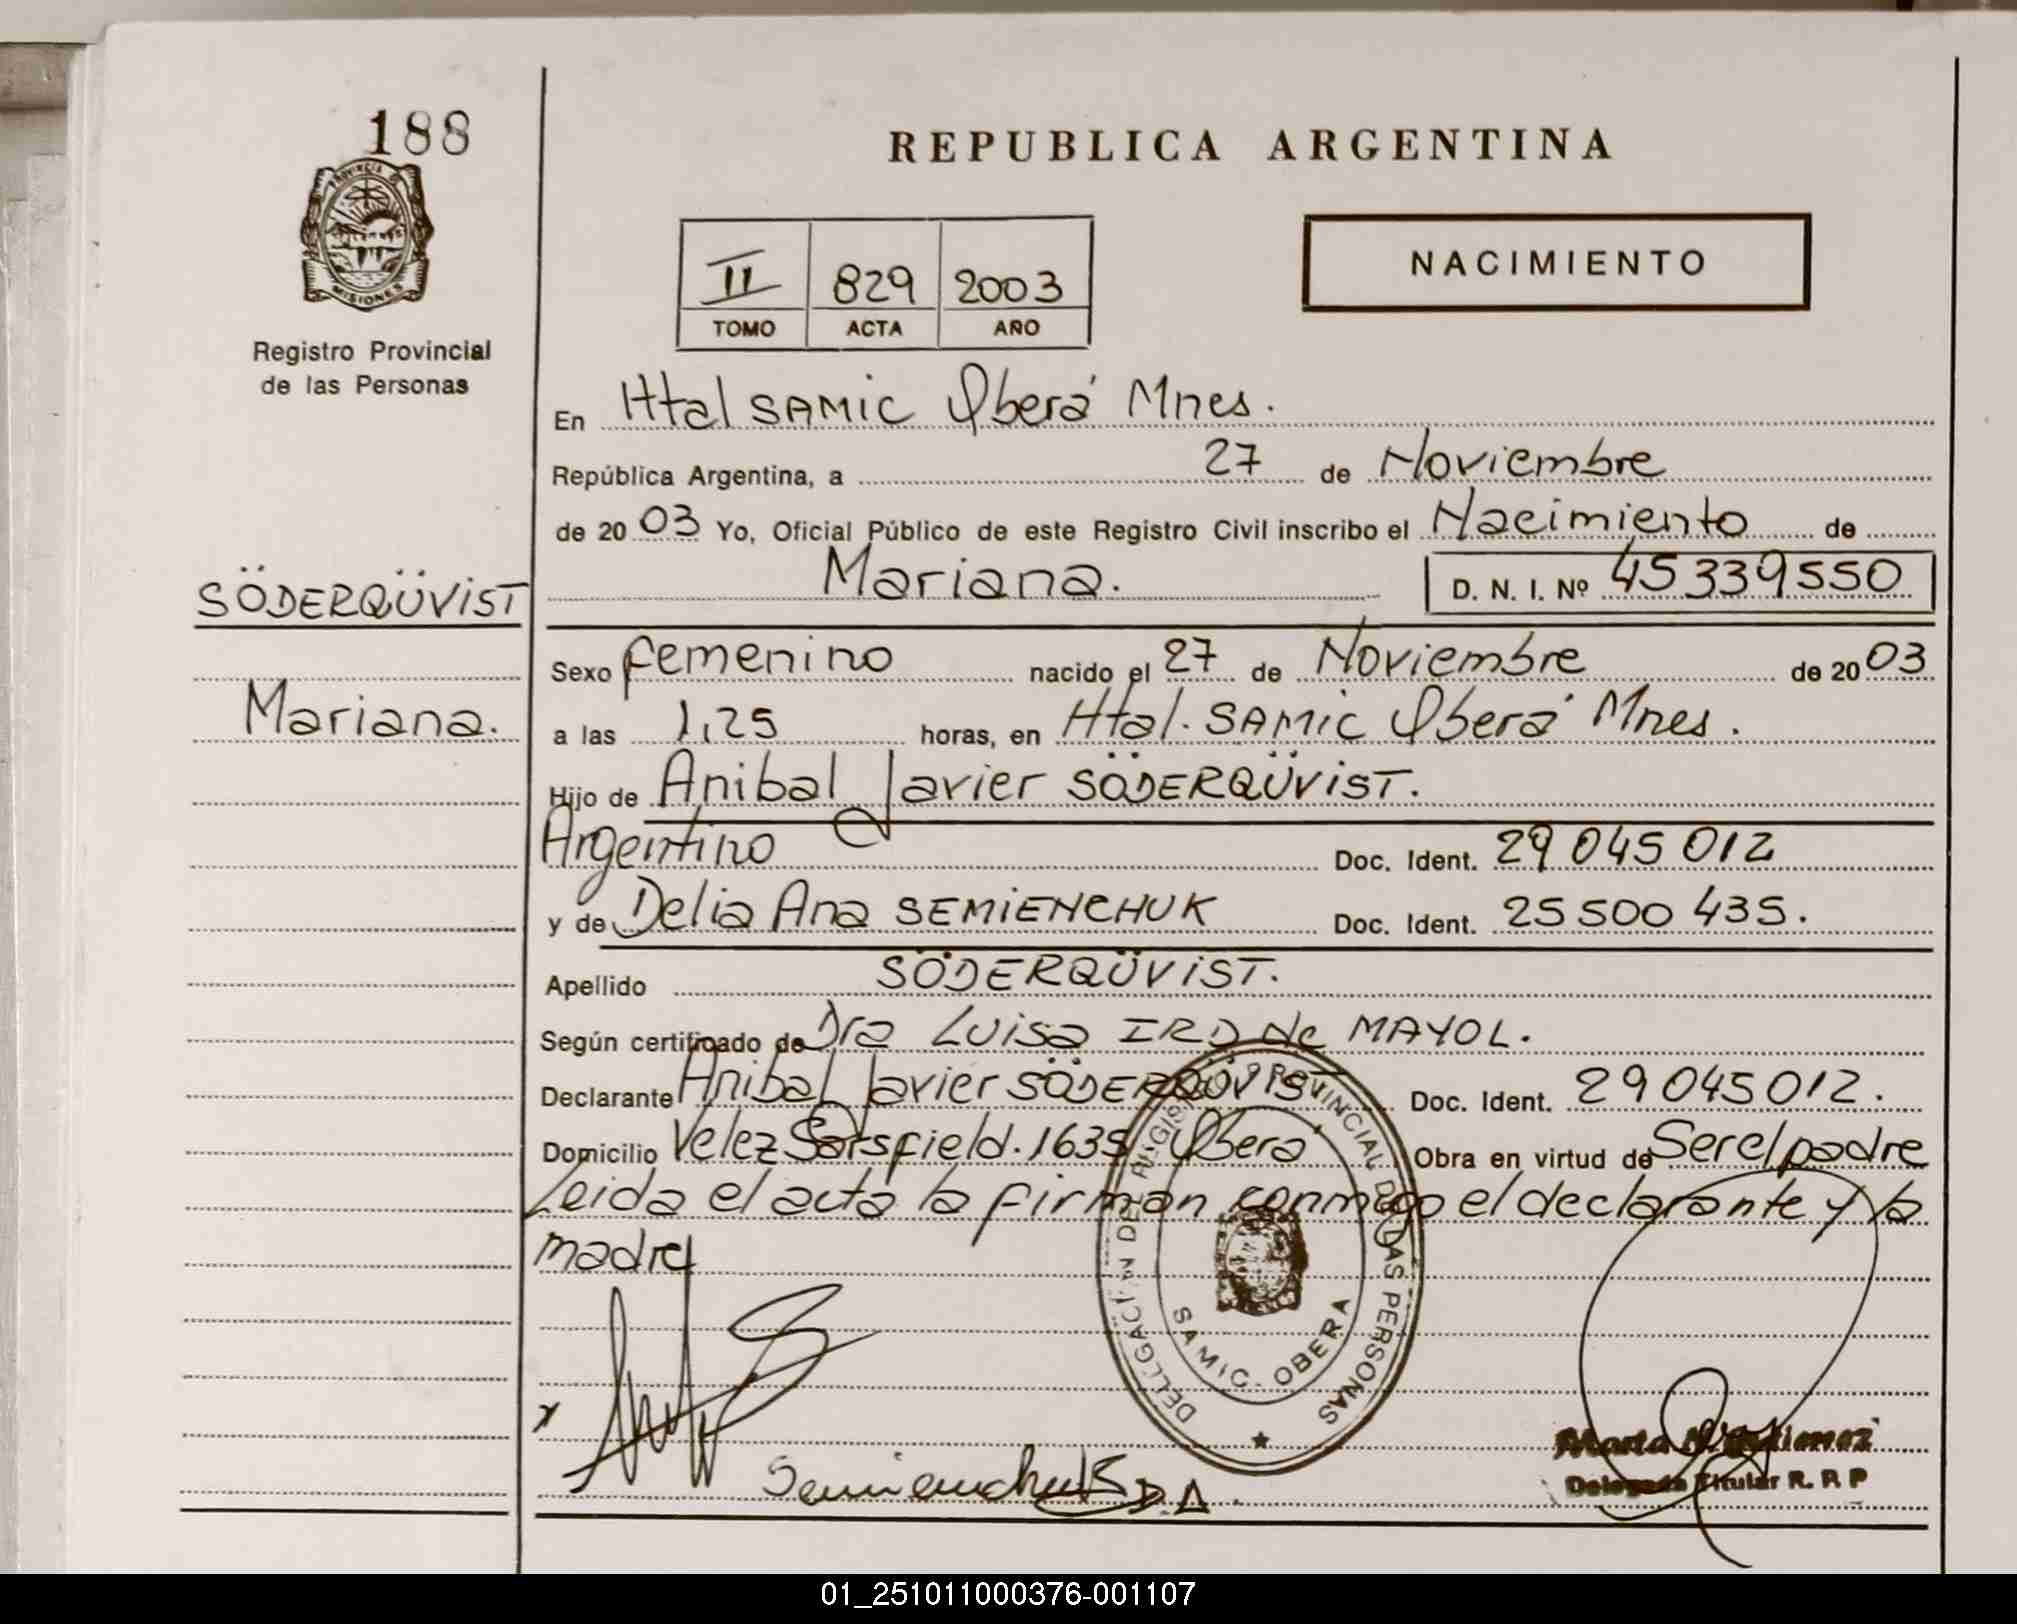 188
PROVINCIA D
MISIONES
Registro Provincial
de las Personas
SÖDERQÜVIST
Mariana.
REPUBLICA ARGENTINA
II 829 2003
TOMO ACTA AÑO
NACIMIENTO
En Htal SAMIC Oberá Mnes.
República Argentina, a 27 de Noviembre
de 20 03 Yo, Oficial Público de este Registro Civil inscribo el Nacimiento de
Mariana. D. N. I. Nº 45339550
Sexo femenino nacido el 27 de Noviembre de 20 03
a las 1,25 horas, en Htal. SAMIC Oberá Mnes.
Hijo de Anibal Javier SÖDERQÜVIST.
Argentino Doc. Ident. 29 045 012
y de Delia Ana SEMIENCHUK Doc. Ident. 25 500 435.
Apellido SÖDERQÜVIST.
Según certificado de Dra Luisa IRD de MAYOL.
Declarante Anibal Javier SÖDERQÜVIST Doc. Ident. 29045012.
Domicilio Velez Sarsfield. 1635 Oberá Obra en virtud de Ser el padre
Leida el acta la firman conmigo el declarante y la
madre
DELEGACION DEL REGISTRO PROVINCIAL DE LAS PERSONAS
SAMIC - OBERA
Semienchuk D. A.
Marta
Delegada Titular R. P. P
01_251011000376-001107